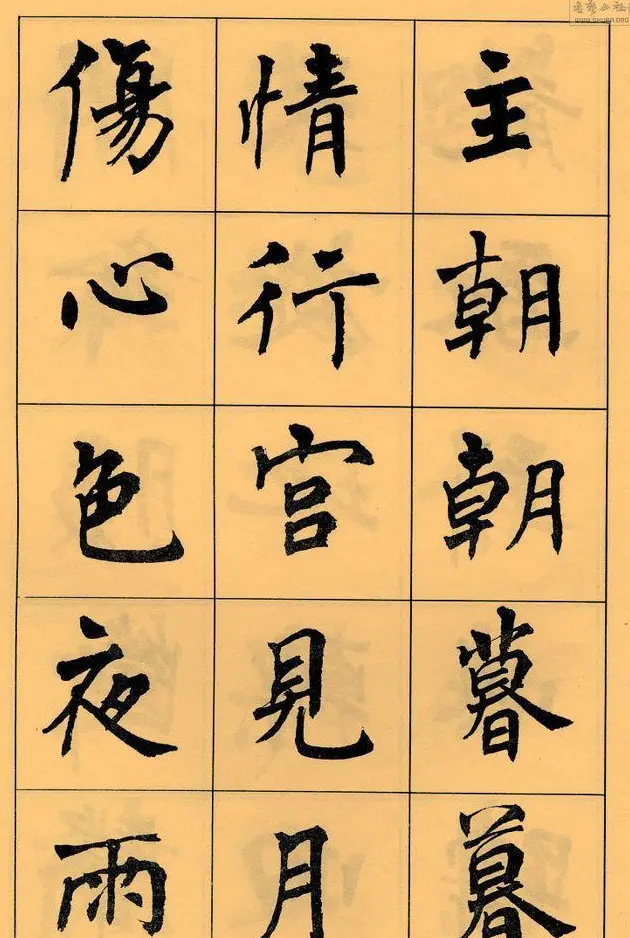 主朝朝暮暮
情行宫見月
傷心色夜雨
WWW.SHUFA.ORG